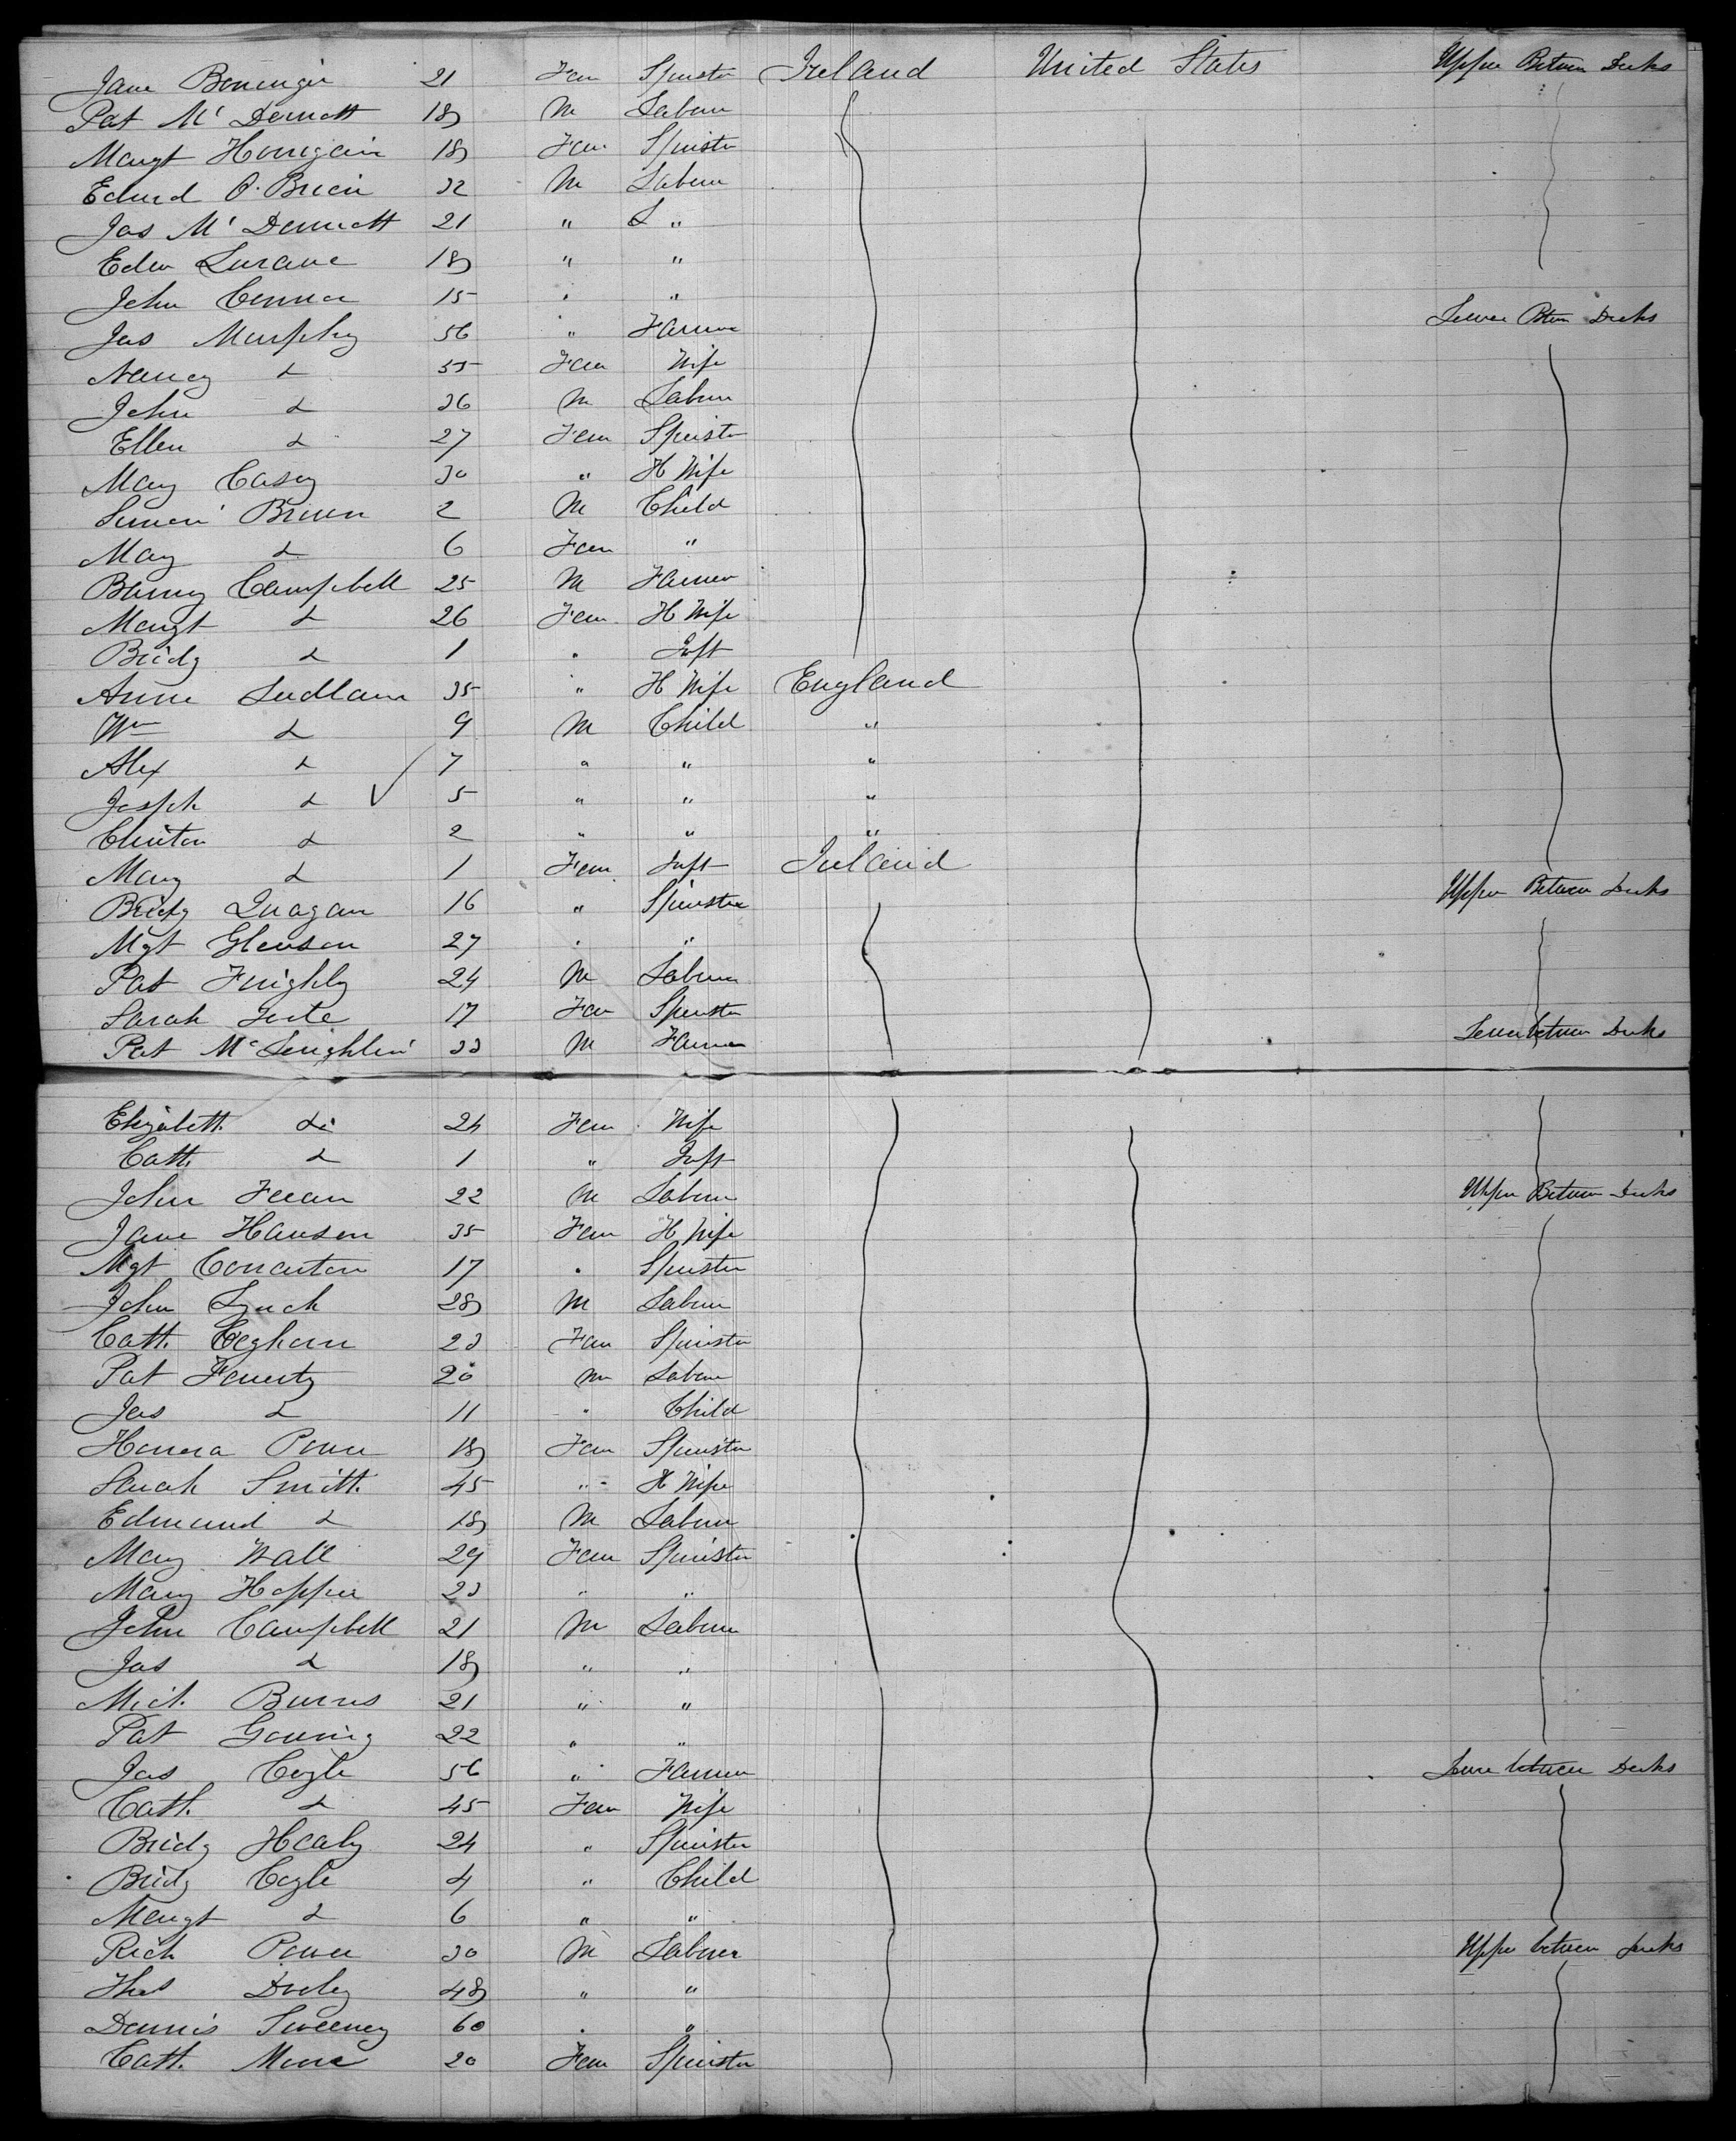 Jane 21 Fem Spinster Ireland United States Upper Between Decks
Pat McDermott 18 M Labour
Margt 18 Fem Spinster
Edwd O'Brien 32 M Labour
Jas McDermott 21 " L "
Edw 18 " "
John Connor 15 " "
Jas Murphy 56 " Farmer Lower Betwn Decks
Nancy do 55 Fem Wife
John do 36 M Labour
Ellen do 27 Fem Spinster
Mary Casey 30 " H Wife
Simon Brown 2 M Child
Mary do 6 Fem "
Barney Campbell 25 M Farmer
Margt do 26 Fem H Wife
Bridg do 1 " Inft
Anne Ludlam 35 " H Wife England
Wm do 9 M Child "
Alex do 7 " " "
Joseph do 5 " " "
Clinton do 2 " " "
Mary do 1 Fem Inft Ireland
Bridg 16 " Spinster Upper Between Decks
Mgt Gleeson 27 " "
Pat 24 M Labour
Sarah 17 Fem Spinster
Pat McLoughlin 33 M Farmer Lower between Decks
Elizabeth do 24 Fem Wife
Cath do 1 " Inft
John 22 M Labour Upper Between Decks
Jane Hanson 35 Fem H Wife
Mgt 17 " Spinster
John Lynch 28 M Labour
Cath 23 Fem Spinster
Pat 20 M Labour
Jas do 11 " Child
Honora Power 18 Fem Spinster
Sarah Smith 45 " H Wife
Edmund do 18 M Labour
Mary Wall 29 Fem Spinster
Mary Hopper 23 " "
John Campbell 21 M Labour
Jas do 18 " "
Mich Burns 21 " "
Pat 22 " "
Jas 56 " Farmer Lower between Decks
Cath do 45 Fem Wife
Bridg Healy 24 " Spinster
Bridg 4 " Child
Margt do 6 " "
Rich Power 30 M Labourer Upper between Decks
Thos 48 " "
Dennis Sweeney 60 " "
Cath 20 Fem Spinster